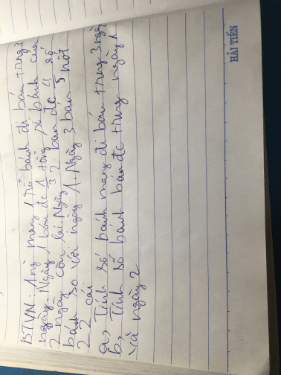 BTVN: 1 ng mang 1 rổ bánh đi bán trong 3
ngày. Ngày 1 bán đc 1 tổng số bánh của
2 ngày còn lại. Ngày 2 bán đc 4 số
bánh so với ngày 1. Ngày 3 bán 5 nốt
22 cái
a, Tính số bánh mang đi bán trong 3 ngày
b, Tính số bánh bán đc trong ngày 1
và ngày 2
HẢI TIẾN